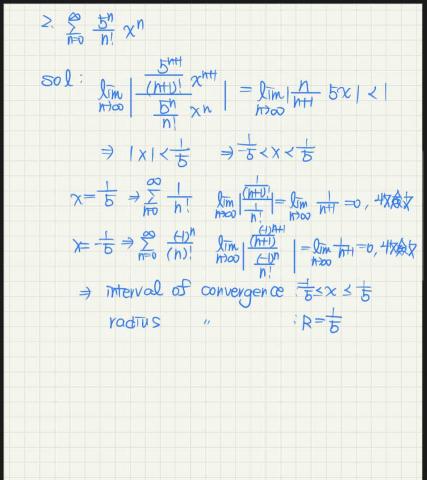 2. \sum_{n=0}^{\infty} \frac{5^n}{n!} x^n
sol: \lim_{n\to\infty} \left| \frac{\frac{5^{n+1}}{(n+1)!} x^{n+1}}{\frac{5^n}{n!} x^n} \right| = \lim_{n\to\infty} \left| \frac{n}{n+1} 5x \right| < 1
⇒ |x| < \frac{1}{5} ⇒ -\frac{1}{5} < x < \frac{1}{5}
x = \frac{1}{5} ⇒ \sum_{n=0}^{\infty} \frac{1}{n!} \lim_{n\to\infty} \left| \frac{\frac{1}{(n+1)!}}{\frac{1}{n!}} \right| = \lim_{n\to\infty} \frac{1}{n+1} = 0, 收斂
x = -\frac{1}{5} ⇒ \sum_{n=0}^{\infty} \frac{(-1)^n}{(n)!} \lim_{n\to\infty} \left| \frac{\frac{(-1)^{n+1}}{(n+1)}}{\frac{(-1)^n}{n!}} \right| = \lim_{n\to\infty} \frac{1}{n+1} = 0, 收斂
⇒ interval of convergence : -\frac{1}{5} ≤ x ≤ \frac{1}{5}
radius 〃 : R = \frac{1}{5}